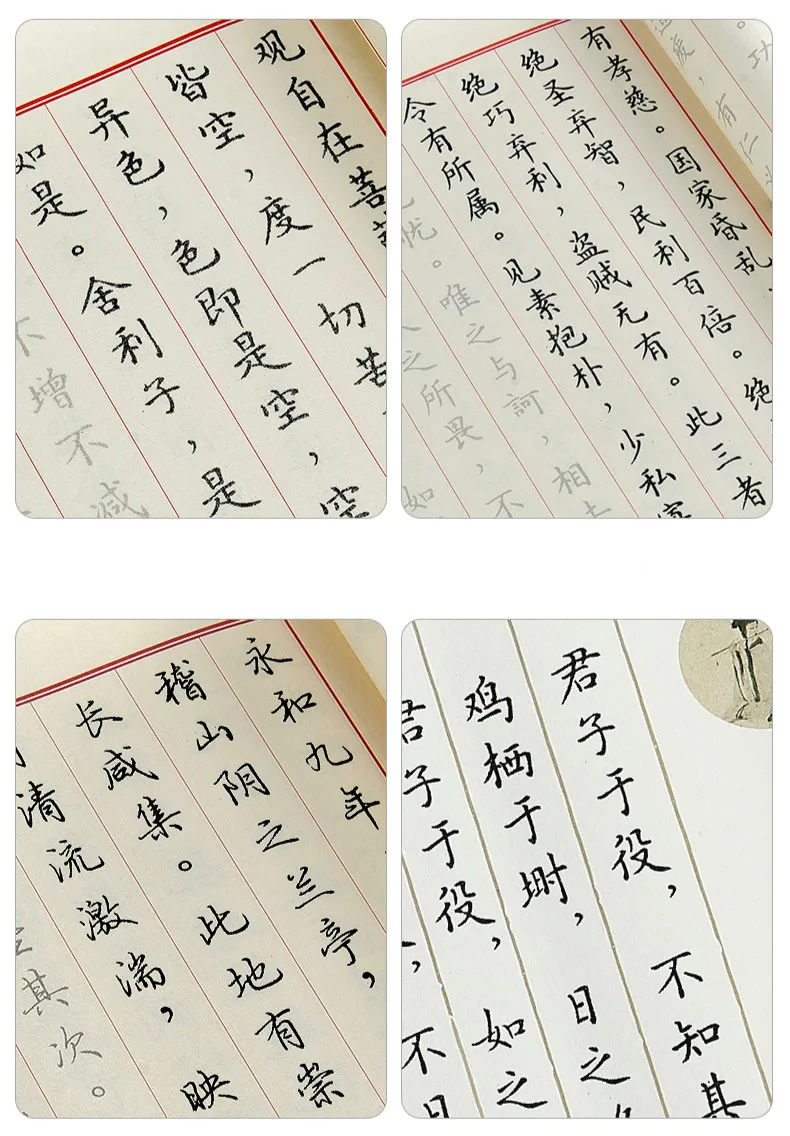 观自在菩
皆空，度一切苦
异色，色即是空，空
如是。舍利子，是
不增不减
有孝慈。国家昏乱
绝圣弃智，民利百倍。绝
绝巧弃利，盗贼无有。此三者
令有所属。见素抱朴，少私
忧。唯之与訶，相去
之所畏，不
如
有仁
功
永和九年
稽山阴之兰亭，
长咸集。此地有崇
清流激湍，映
其次。
君子于役，不知其
鸡栖于埘，日之
君子于役，如之
不日